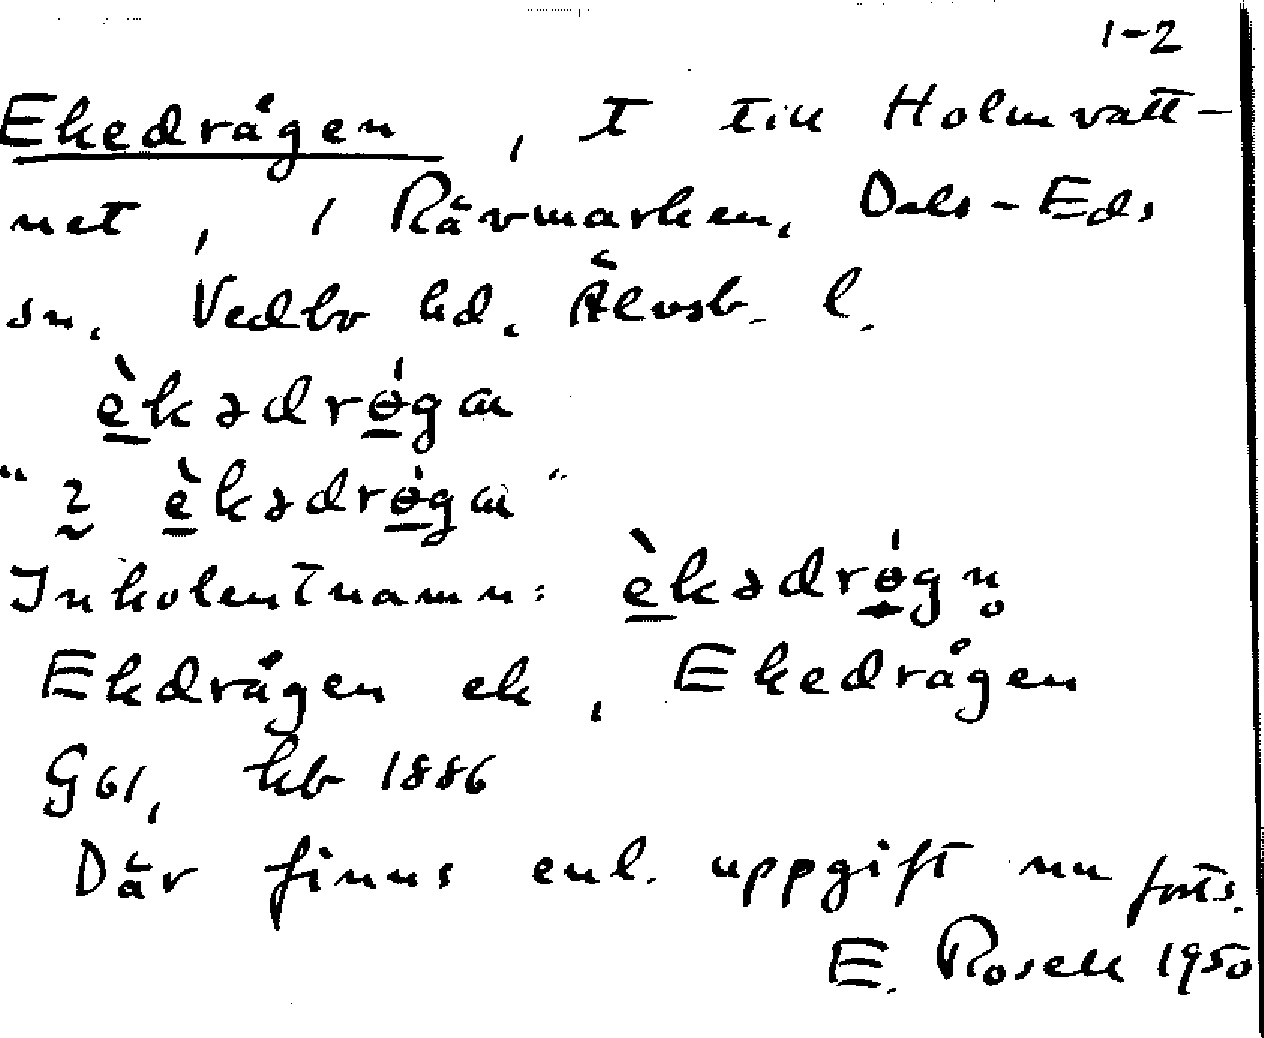 1-2
Ekedrågen, t till Holmvatt-
net, i Rävmarken, Dals-Eds
sn. Vedbo hd. Älvsb. l.
è̱kədrɵ̱́gæn
" 2 è̱kədrɵ̱́gæn "
Inkolentnamn: è̱kədrɵ̱́gn̥
Ekdrågen ek, Ekedrågen
G61, kb 1886
Där finns enl. uppgift nu forts.
E. Rosell 1950